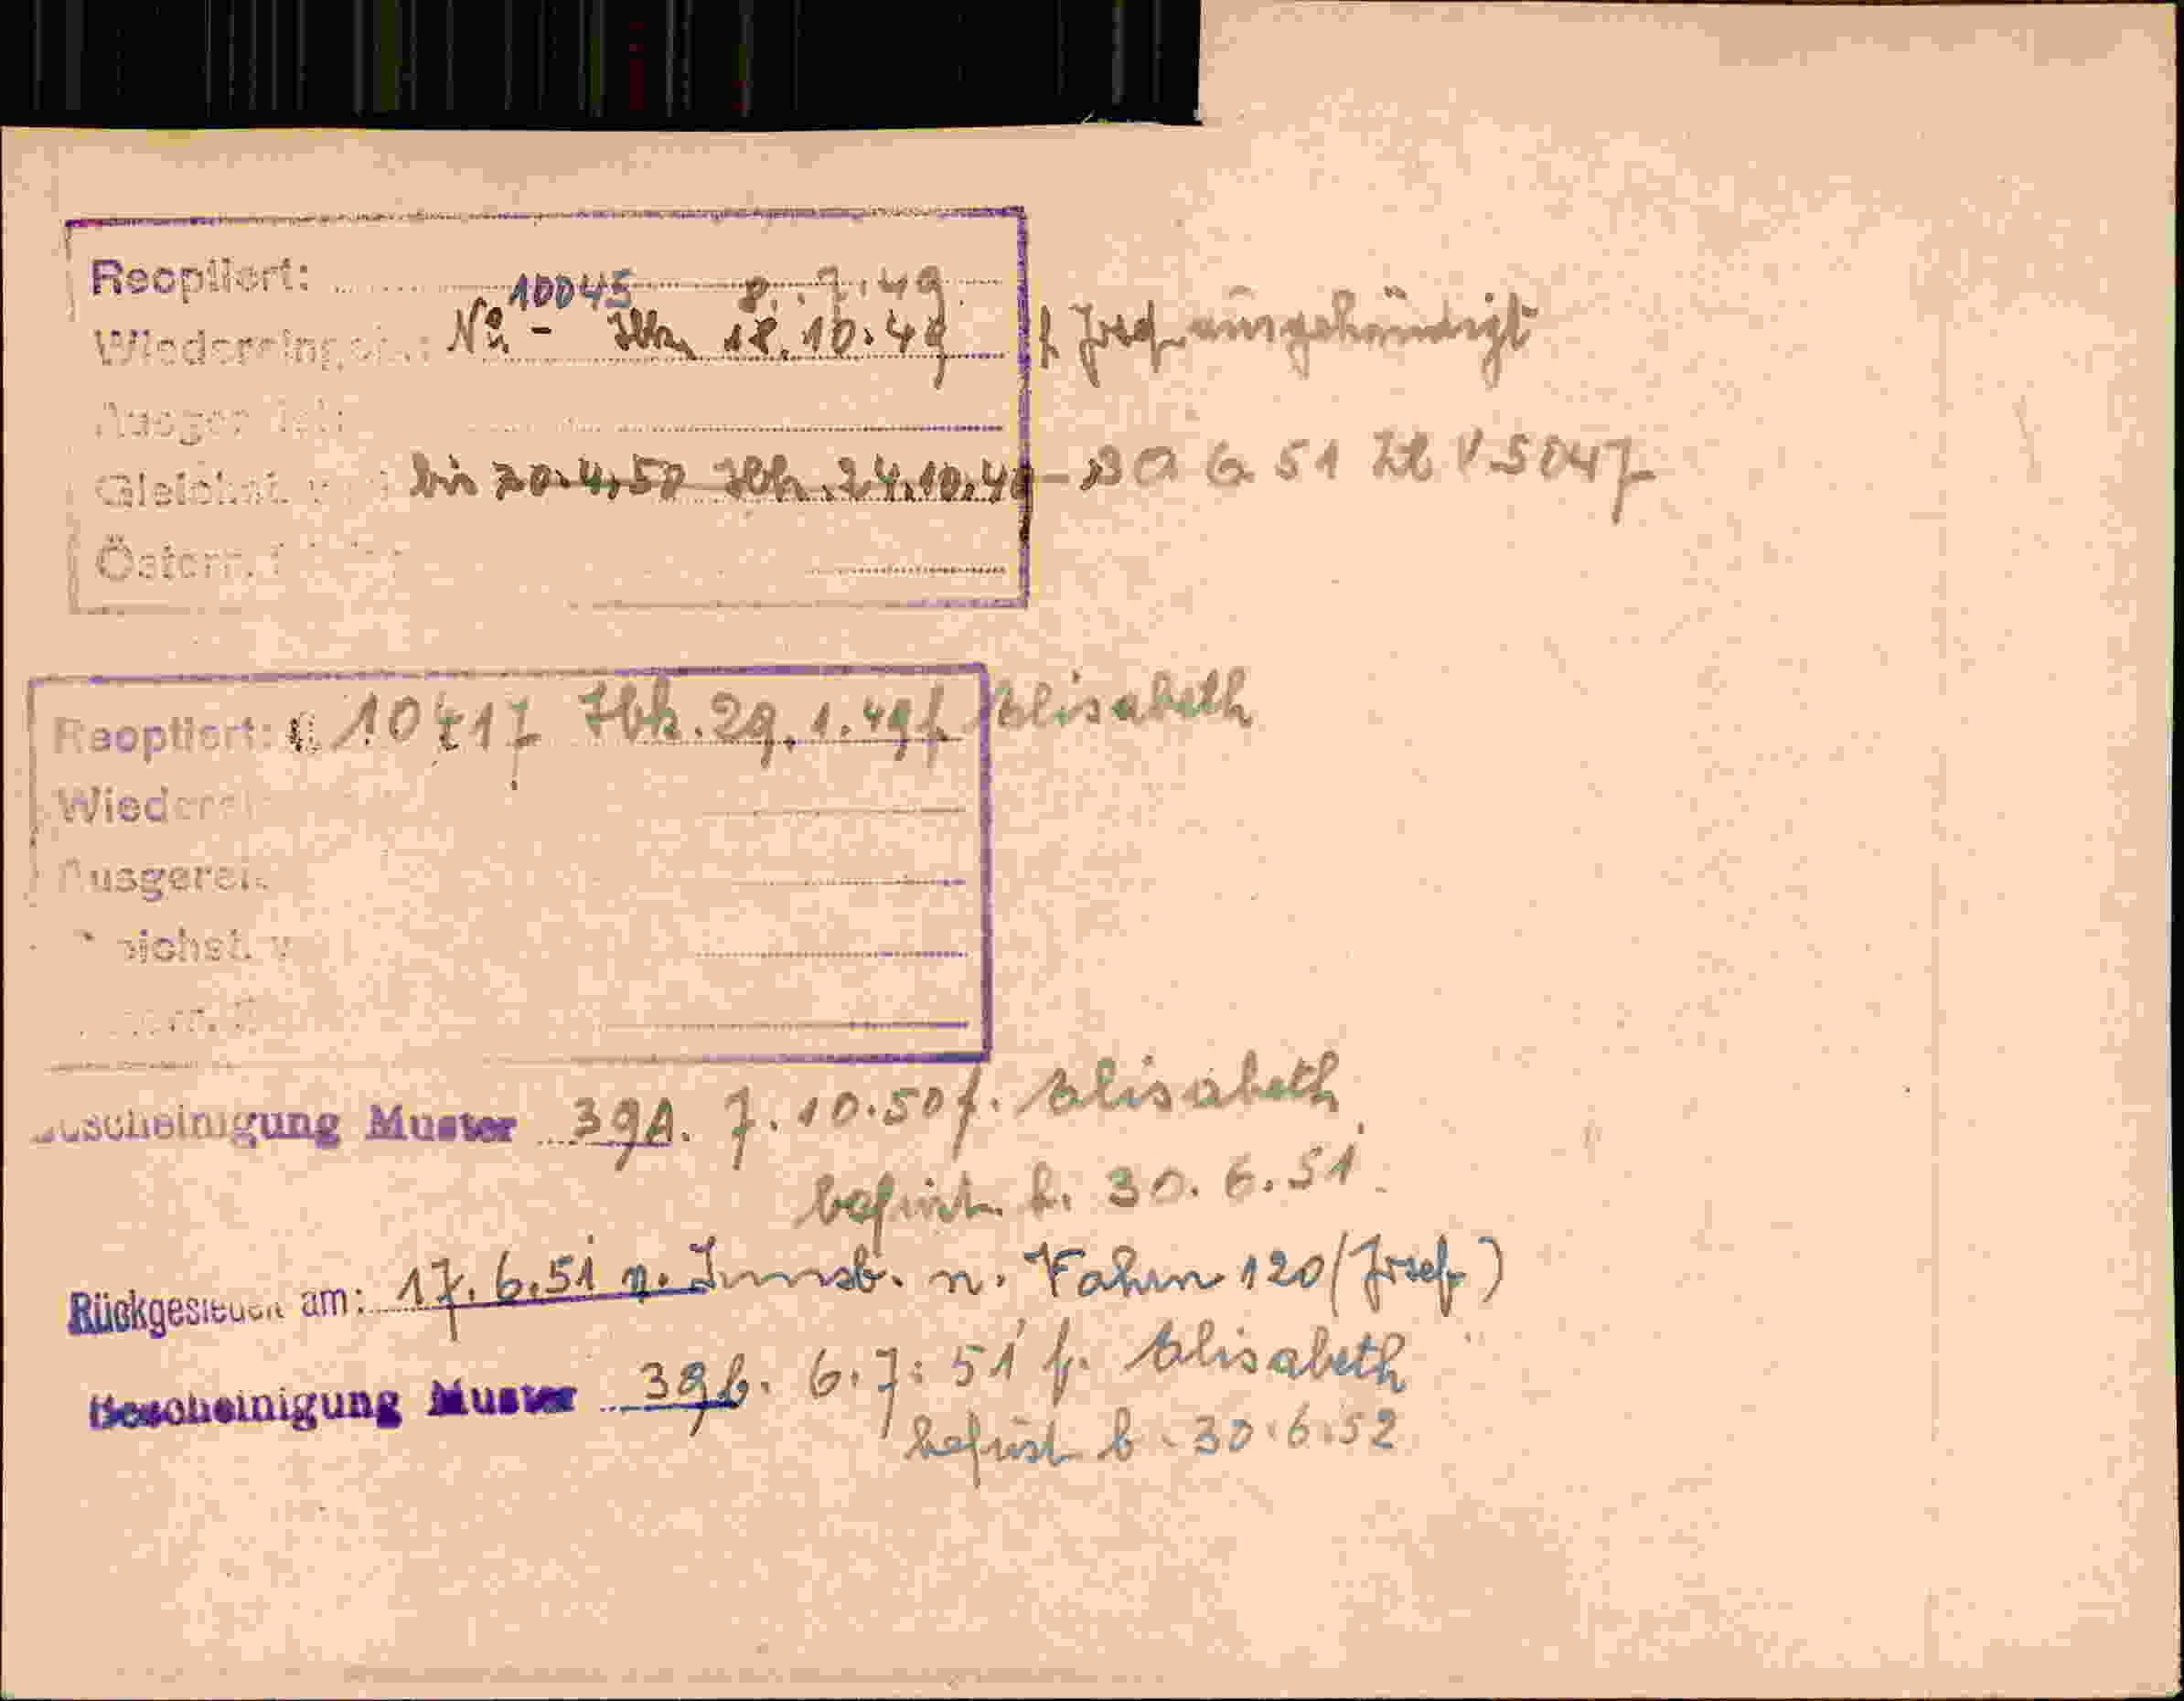 Reoptiert: 10045 8.7.49.
Wiedereingeb.: Nü - Ibk. 18.10.49 f. Josef ausgehändigt
Gleichst. v. bis 30.4.50 Ibk. 24.10.49 - 30 6 51 Zl V 5047
Österr.
Reoptiert: 10717 Ibk. 29.1.49 f. Elisabeth
Wiederei
Ausgerei
eichst. v
Bescheinigung Muster 39A. 7.10.50 f. Elisabeth
befrist. b. 30.6.51.
Rückgesiedelt am: 17.6.51 n. Innsb. n. Vahrn 120 (Josef)
Bescheinigung Muster 39b. 6.7.51 f. Elisabeth
befrist b. 30.6.52